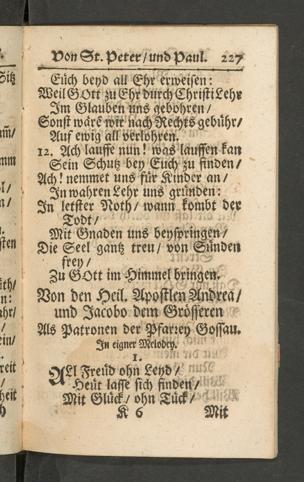 Von St. Peter/ und Paul. 227
Euch beyd all Ehr erweisen:
Weil GOtt zu Ehr durch Christi Lehr
Im Glauben uns gebohren/
Sonst wäre wir nach Rechts gebühr/
Auf ewig all verlohren.
12. Ach lauffe nun! was lauffen kan
Sein Schutz bey Euch zu finden/
Ach! nemmet uns für Kinder an/
In wahren Lehr uns gründen:
In letster Noth/ wann kombt der
Todt/
Mit Gnaden uns beyspringen/
Die Seel gantz treu/ von Sünden
frey/
Zu GOtt im Himmel bringen.
Von den Heil. Apostlen Andrea/
und Jacobo dem Grösseren
Als Patronen der Pfarrey Gossau.
In eigner Melodey.
1.
All Freüd ohn Leyd/
Heüt lasse sich finden/
Mit Glück/ ohn Tück/
K 6 Mit